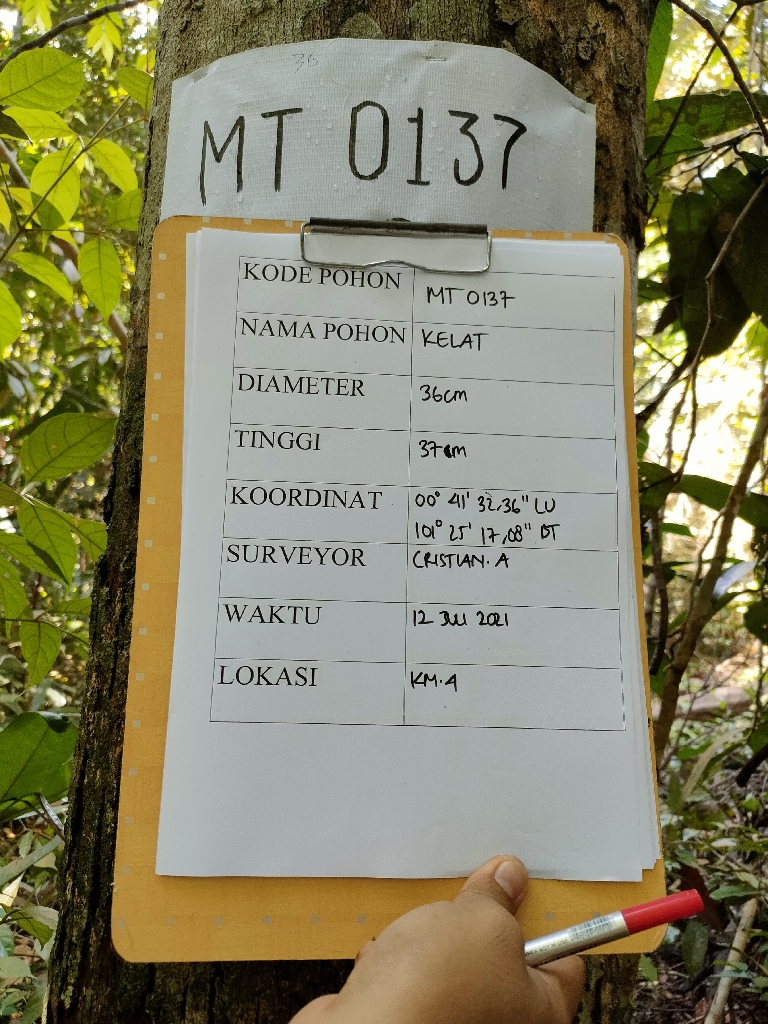 36
MT 0137
KODE POHON MT 0137
NAMA POHON KELAT
DIAMETER 36cm
TINGGI 37cm
KOORDINAT 00° 41' 32,36" LU
101° 25' 17,08" BT
SURVEYOR CRISTIAN.A
WAKTU 12 JULI 2021
LOKASI KM.4